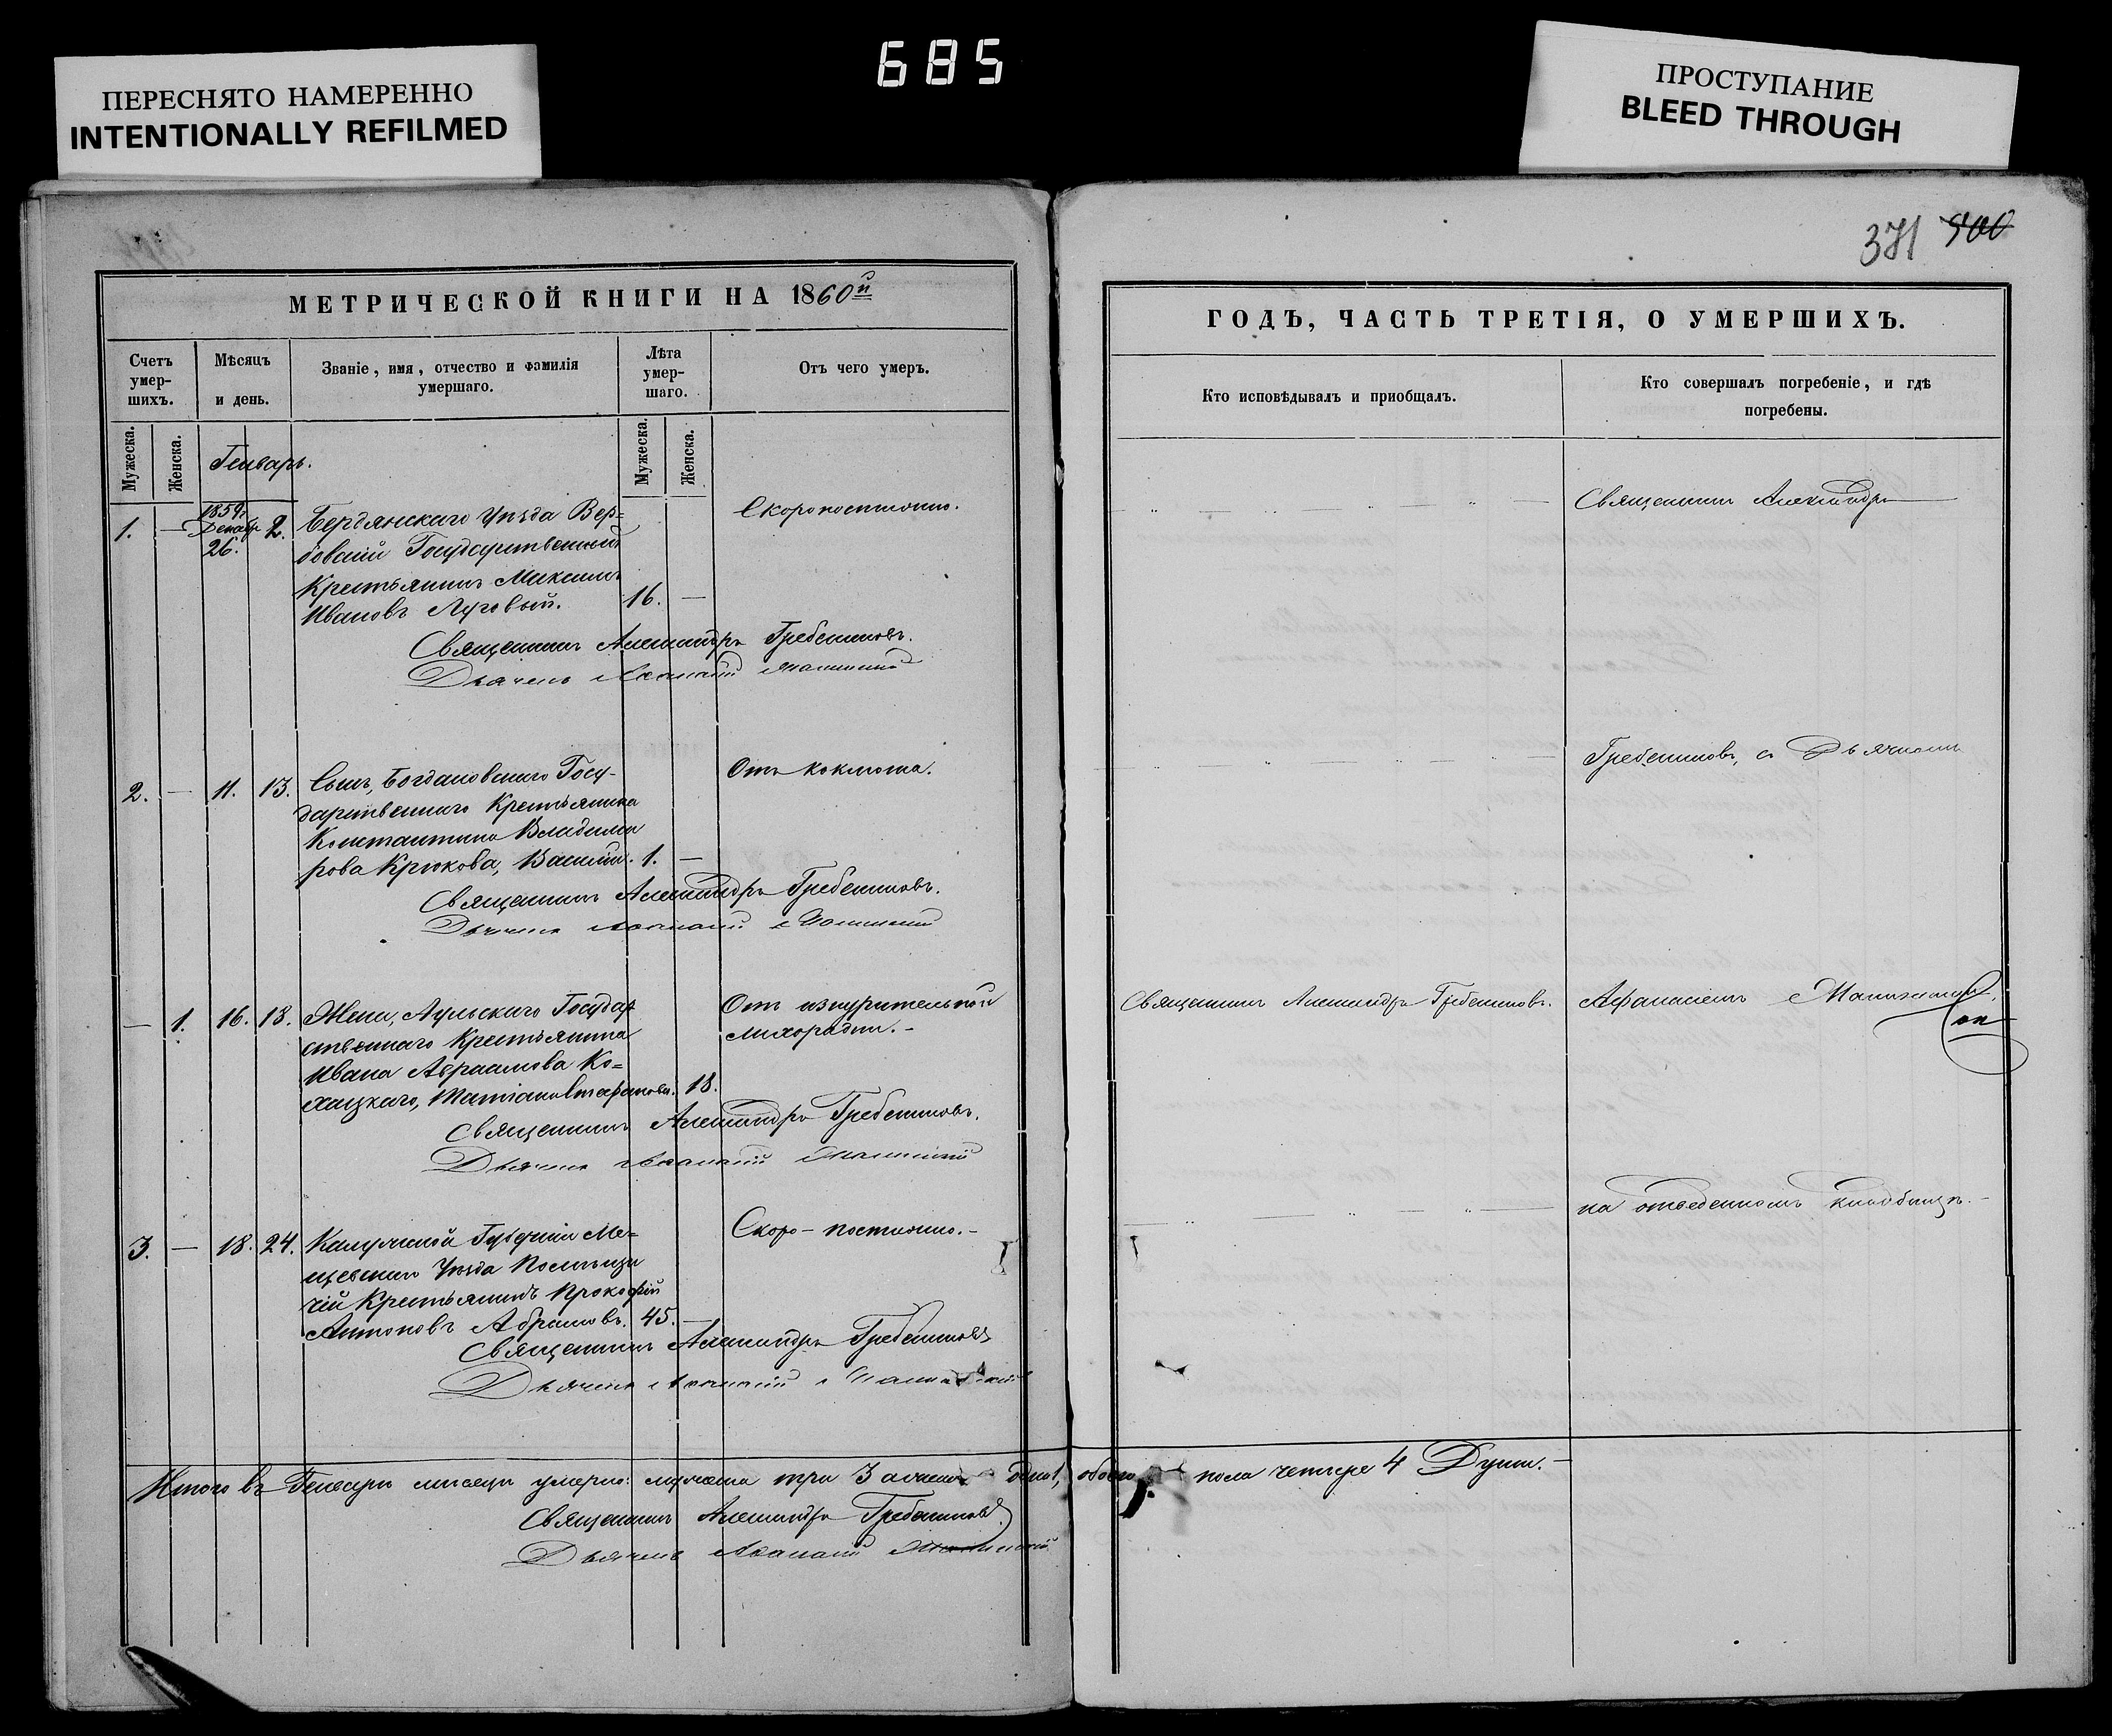 685
ПЕРЕСНЯТО НАМЕРЕННО
INTENTIONALLY REFILMED
ПРОСТУПАНИЕ
BLEED THROUGH
371 500
МЕТРИЧЕСКОЙ КНИГИ НА 1860й
Счетъ умер-шихъ.
Мѣсяцъ и день.
Званіе, имя, отчество и фамилія умершаго.
Лѣта умер-шаго.
Отъ чего умеръ.
Мужеска.
Женска.
Мужеска.
Женска.
Генварь.
1. — 1859 Декабр 26. 2. Бердянскаго Уѣзда Вер=
бовскій Государственный
Крестьянинъ Максимъ
Ивановъ Луговый. 16. —
Скоропостижно.
Священникъ Александръ Гребенниковъ.
Дьячекъ
2. — 11. 13. Сынъ, Богдановскаго Госу-
дарственнаго Крестьянина
Константина Владими
рова Крюкова, Василій. 1. —
Отъ коклюша.
Священникъ Александръ Гребенниковъ.
Дьячекъ
— 1. 16. 18. Жена, Аульскаго Государ
ственнаго Крестьянина
Ивана Авраамова Ко=
18.
Отъ изнурительной
лихорадки. -
Священникъ Александръ Гребенниковъ.
Дьячекъ
3. — 18. 24. Калужской Губерніи Ме=
щевскаго Уѣзда Помѣщи
чій Крестьянинъ Прокофій
Антоновъ Абрамовъ. 45. —
Скоро-постижно. -
Священникъ Александръ Гребенниковъ
Дьячекъ
Итого въ Генварѣ мѣсяцѣ умерло: мужеска три 3 а женска одна 1, обоего пола четыре 4 Души. -
Священникъ Александръ Гребенниковъ
Дьячекъ
ГОДЪ, ЧАСТЬ ТРЕТІЯ, О УМЕРШИХЪ.
Кто исповѣдывалъ и пріобщалъ.
Кто совершалъ погребеніе, и гдѣ
погребены.
Священникъ Александръ
Гребенниковъ, съ Дьячкомъ
Священникъ Александръ Гребенниковъ.
Афанасіемъ
на отведенномъ кладбищѣ. -